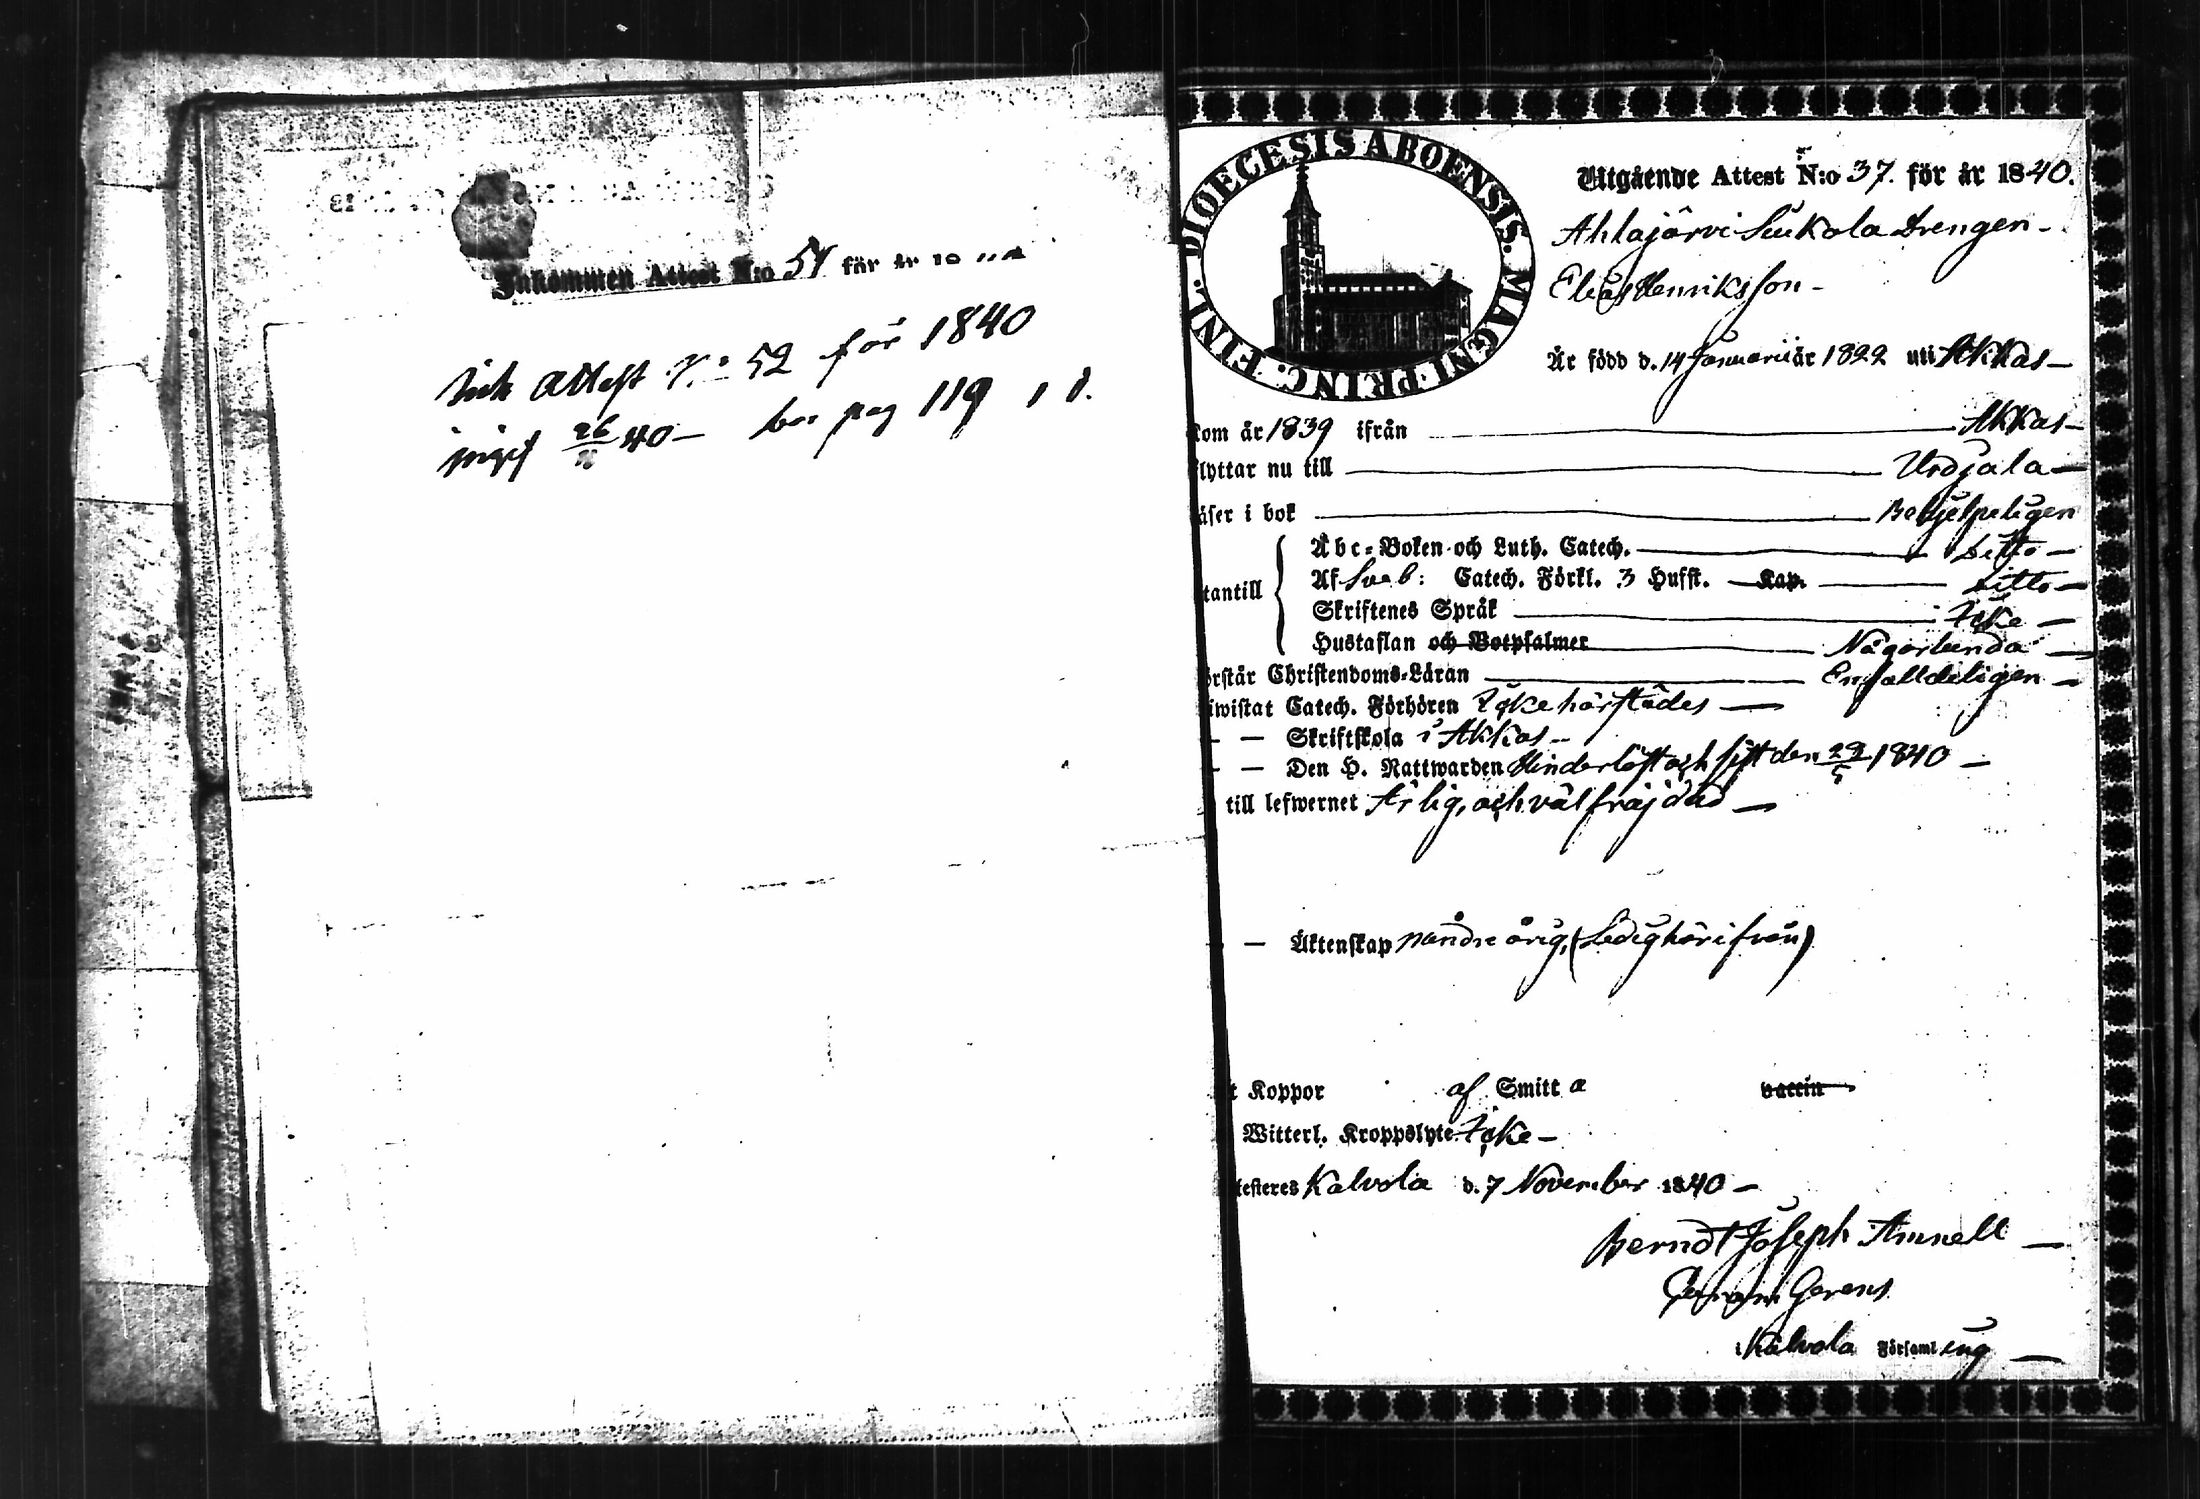 Inkommen Attest N:o 51 för år
Attest N:o 52 för 1840
26 40 — pag 119
DIOECESIS ABOENSIS. MAGNI PRINC. FINL.
Utgående Attest N:o 37. för år 1840.
Ahlajärvi Sukola Drengen —
Elias Henriksson —
Är född d. 14 Januarii år 1822 uti Akkas —
kom år 1839 ifrån — Akkas —
flyttar nu till — Urdjala —
läser i bok — Behjelpeligen
Abc-Boken och Luth. Catech. — Ditto —
Af Sveb: Catech. Förkl. 3 Hufst. Kap. — Ditto —
tantill
Skriftenes Språk — Icke —
Hustaflan och Botpsalmer — Någorlunda —
örstår Christendoms-Läran — Enfalldeligen —
iwistat Catech. Förhören Icke härstädes —
— — Skriftskola i Akkas —
— — Den H. Nattwarden Hinderlöst och sist den 29/5 1840 —
till lefwernet Ärlig, och väl fräjdad —
— Äktenskap mindre årig, (Ledig härifrån)
t Koppor af Smitta vaccin
Witterl. Kroppslyte Icke —
testeres Kalvola d. 7 November 1840 —
Berndt Joseph Amnell —
Gerens
i Kalvola Församling —